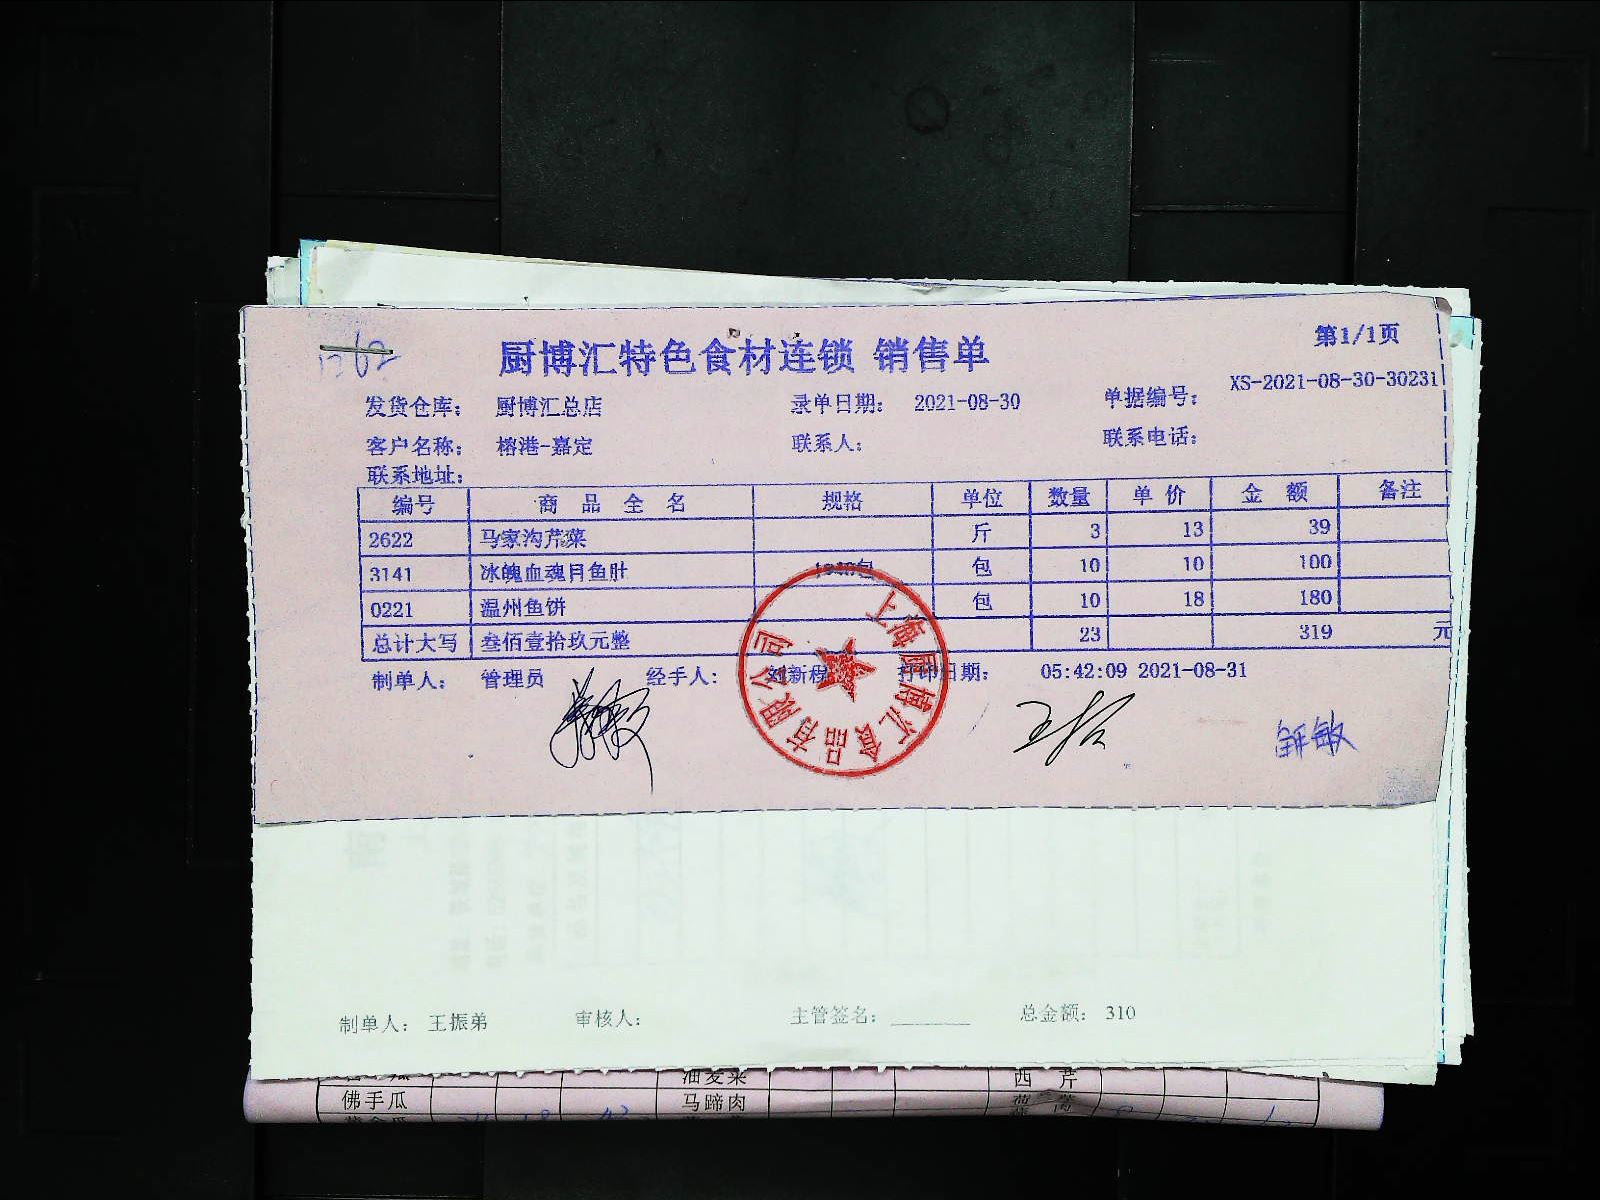 厨博汇特色食材连锁 销售单
第1/1页
发货仓库： 厨博汇总店 录单日期： 2021-08-30 单据编号： XS-2021-08-30-30231
客户名称： 榕港-嘉定 联系人： 联系电话：
联系地址：
编号 商品全名 规格 单位 数量 单价 金额 备注
2622 马家沟芹菜 斤 3 13 39
3141 冰魄血魂月鱼肚 包 10 10 100
0221 温州鱼饼 包 10 18 180
总计大写 叁佰壹拾玖元整 23 319 元
制单人： 管理员 经手人： 刘新程 打印日期： 05:42:09 2021-08-31
上海厨博汇食品有限公司
制单人： 王振弟 审核人： 主管签名： ________ 总金额： 310
油麦菜 西芹
佛手瓜 马蹄肉